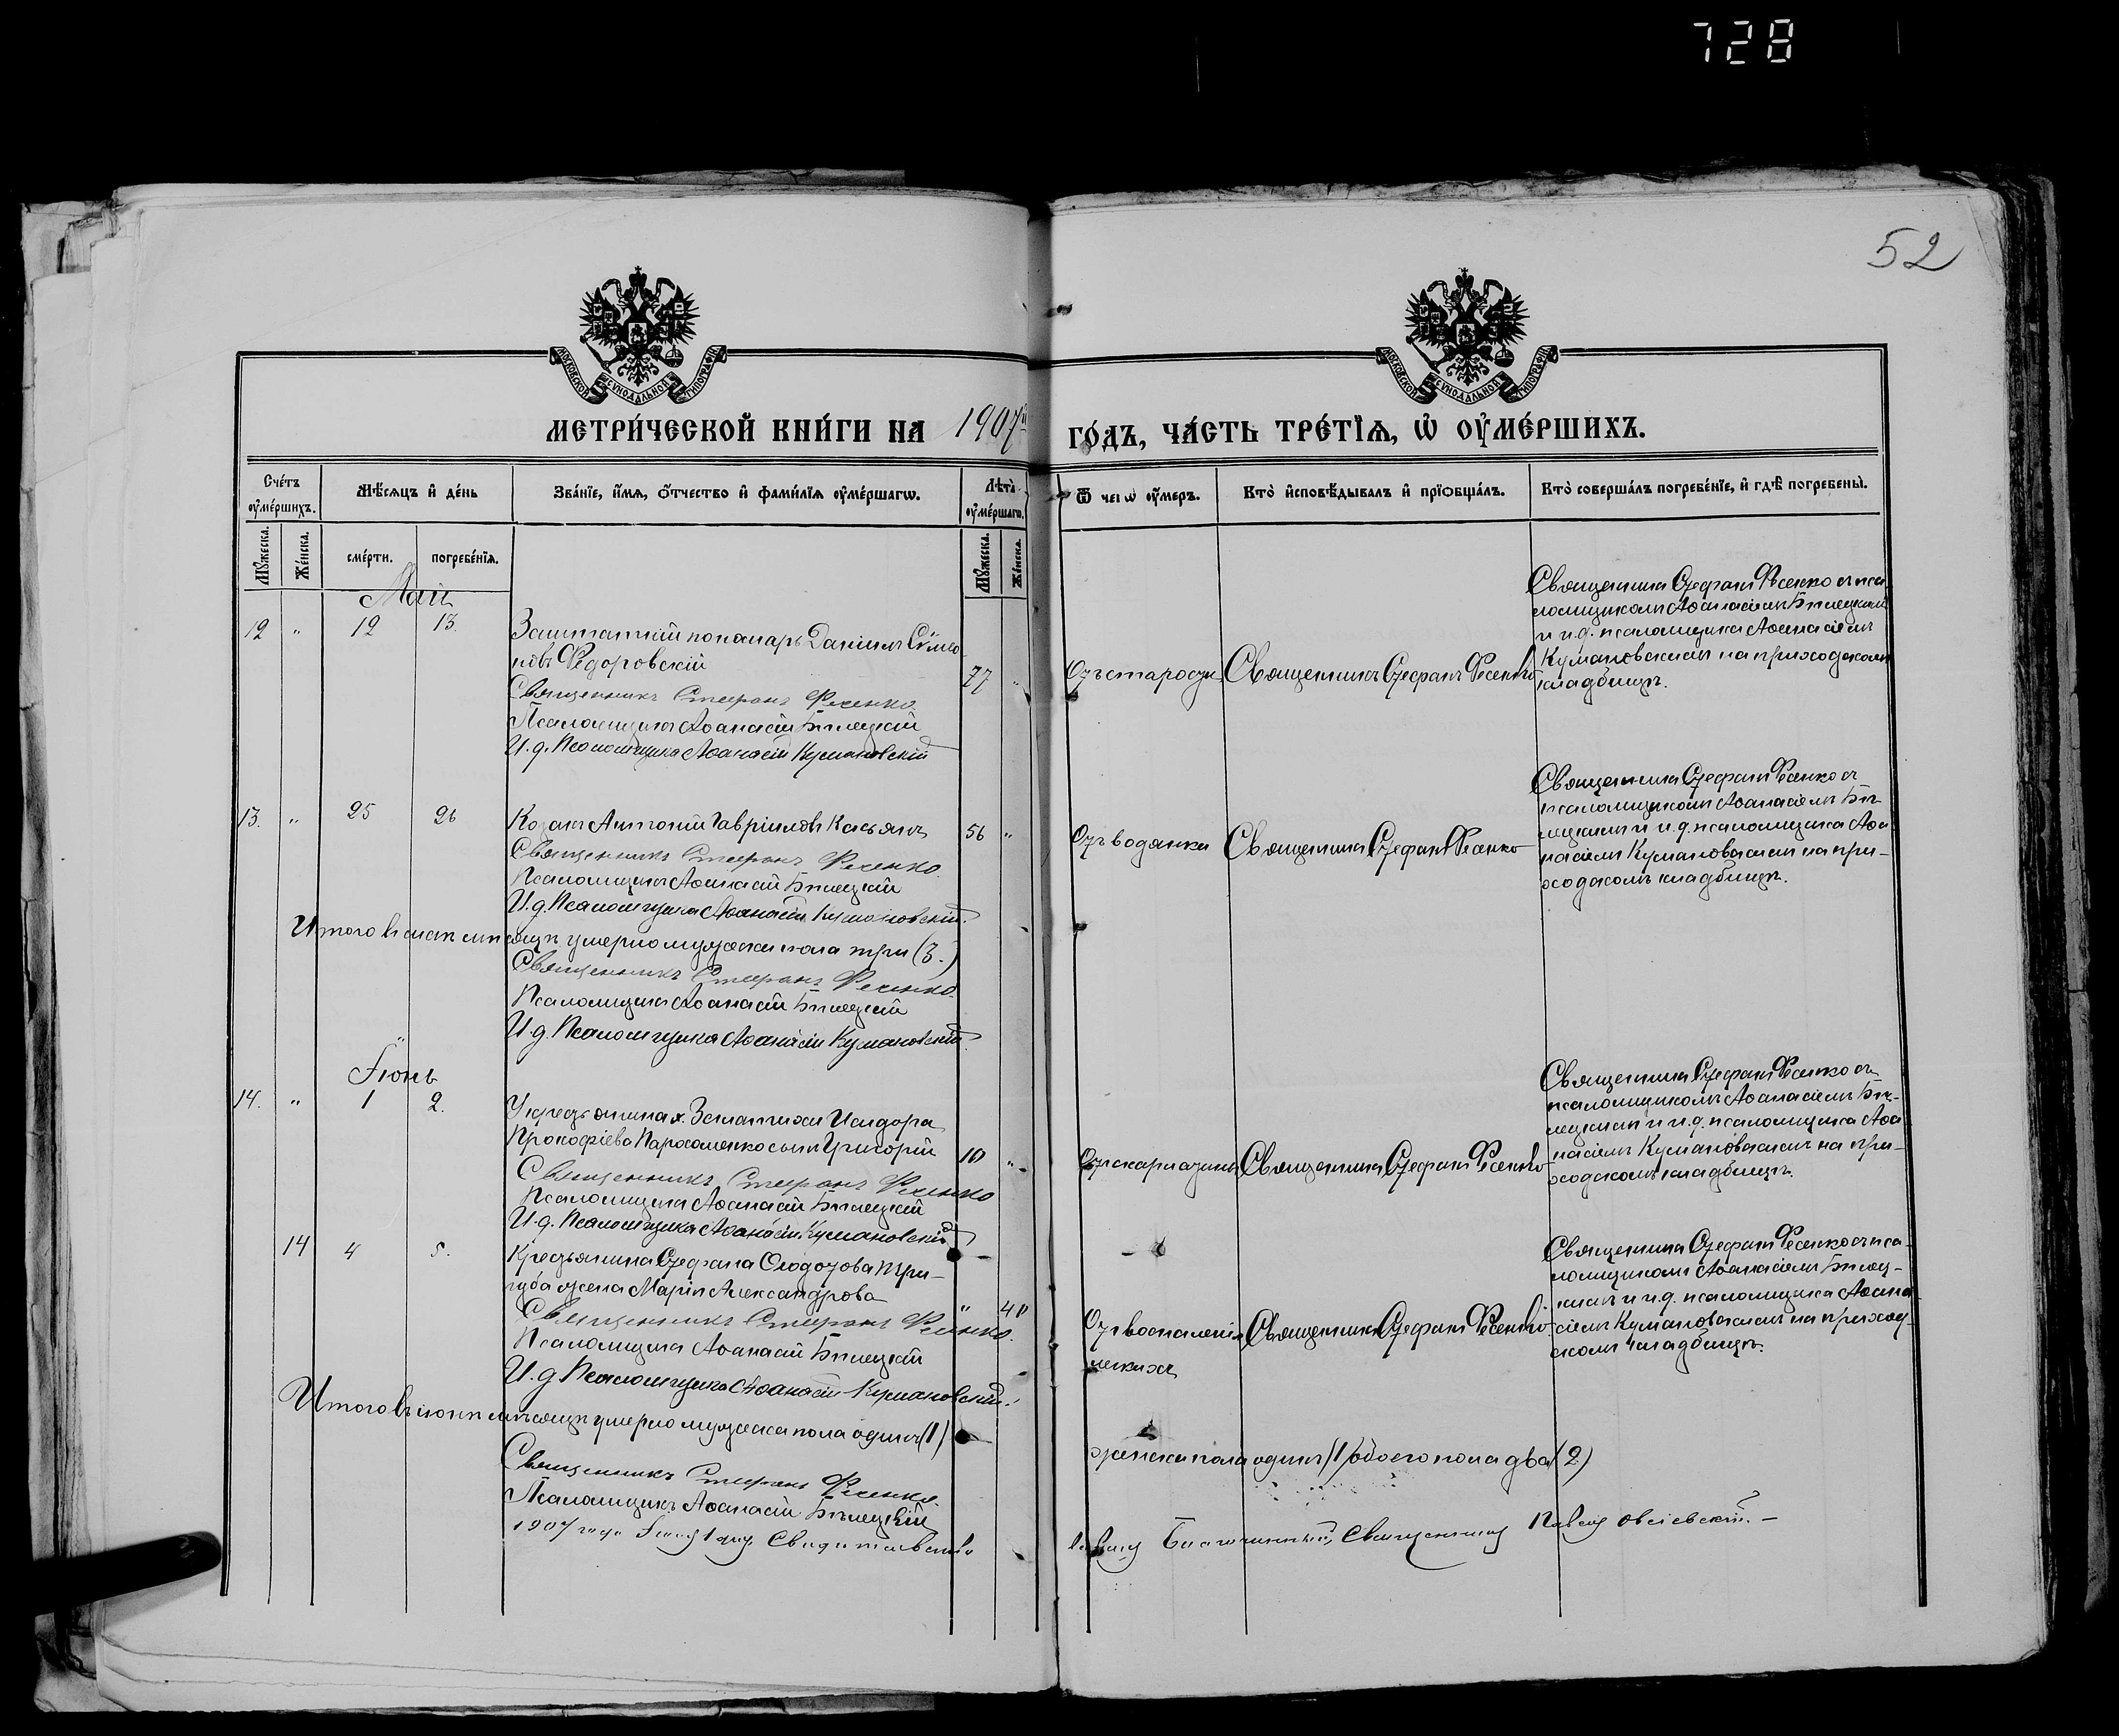 728
52
МОСКОВСКОЙ СѴНОДАЛЬНОЙ ТИПОГРАФІИ
МОСКОВСКОЙ СѴНОДАЛЬНОЙ ТИПОГРАФІИ
МЕТРИ́ЧЕСКОЙ КНИ́ГИ НА 1907й ГО́ДЪ, ЧА́СТЬ ТРЕ́ТІѦ, Ѡ҆ ОУ҆МЕ́РШИХЪ.
Сче́тъ оу҆ме́ршихъ.
Мѣ́сяцъ и҆ де́нь
Зва́нїе, и҆́мя, ѻ҆́тчество и҆ фами́лїя оу҆ме́ршагѡ.
Лѣта̀ оу҆ме́ршагѡ.
Ѿ чегѡ̀ оу҆́меръ.
Кто̀ и҆сповѣ́дывалъ и҆ прїѡбща́лъ.
Кто̀ соверша́лъ погребе́нїе, и҆ гдѣ̀ погребены̀.
Мꙋ́жеска.
Же́нска.
сме́рти.
погребе́нїя.
Мꙋ́жеска.
Же́нска.
Май
12 " 12 13.
Заштатний пономарь Даніилъ Сѵмео-
новъ Федоровскій
77 "
Священникъ Стефанъ Фесенко.
Псаломщикъ Аѳанасій Бѣлецкій
И.д. Псаломщика Аѳанасій Кумановскій
Отъ старости
Священникъ Стефанъ Фесенко
Священникъ Стефанъ Фесенко съ пса-
ломщикомъ Аѳанасіемъ Бѣлецкимъ
и и.д. псаломщика Аѳанасіемъ
Кумановскимъ на приходскомъ
кладбищѣ.
13. " 25 26
Козакъ Антоній Гавріиловъ Касьянъ
56 "
Священникъ Стефанъ Фесенко.
Псаломщикъ Аѳанасій Бѣлецкій
И.д. Псаломщика Аѳанасій Кумановскій.
Отъ водянки
Священникъ Стефанъ Фесенко
Священникъ Стефанъ Фесенко съ
псаломщикомъ Аѳанасіемъ Бѣ-
лецкимъ и и.д. псаломщика Аѳа-
насіемъ Кумановскимъ на при-
ходскомъ кладбищѣ.
Итого въ маѣ мѣсяцѣ умерло мужеска пола три (3.)
Священникъ Стефанъ Фесенко.
Псаломщикъ Аѳанасій Бѣлецкій
И.д. Псаломщика Аѳанасій Кумановскій.
Іюнь
14. " 1 2.
У крестьянина х. Исидора
Прокофіева Пархоменко сынъ Григорій
10 "
Священникъ Стефанъ Фесенко
Псаломщикъ Аѳанасій Бѣлецкій
И.д. Псаломщика Аѳанасій Кумановскій
Отъ скарлатины
Священникъ Стефанъ Фесенко
Священникъ Стефанъ Фесенко съ
псаломщикомъ Аѳанасіемъ Бѣ-
лецкимъ и и.д. псаломщика Аѳа-
насіемъ Кумановскимъ на при-
ходскомъ кладбищѣ.
14 4 5.
Крестьянина Стефана Ѳеодотова При-
губа жена Марія Александрова
" 40
Священникъ Стефанъ Фесенко.
Псаломщикъ Аѳанасій Бѣлецкій
И.д. Псаломщика Аѳанасій Кумановскій.
Отъ воспаленія
легкихъ
Священникъ Стефанъ Фесенко
Священникъ Стефанъ Фесенко съ пса-
ломщикомъ Аѳанасіемъ Бѣлец-
кимъ и и.д. псаломщика Аѳана-
сіемъ Кумановскимъ на приход-
скомъ кладбищѣ.
Итого въ іюнѣ мѣсяцѣ умерло мужеска пола одинъ (1)
женска пола одинъ (1) обоего пола два (2)
Священникъ Стефанъ Фесенко.
Псаломщикъ Аѳанасій Бѣлецкій
1907 года дня Свидѣтельство-
валъ Благочинный, Священникъ Павелъ